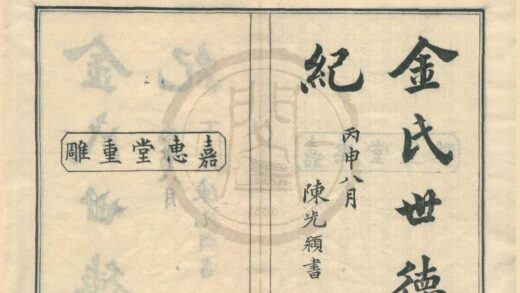 金氏世德
紀
丙申八月
陳光頴書
嘉惠堂重雕